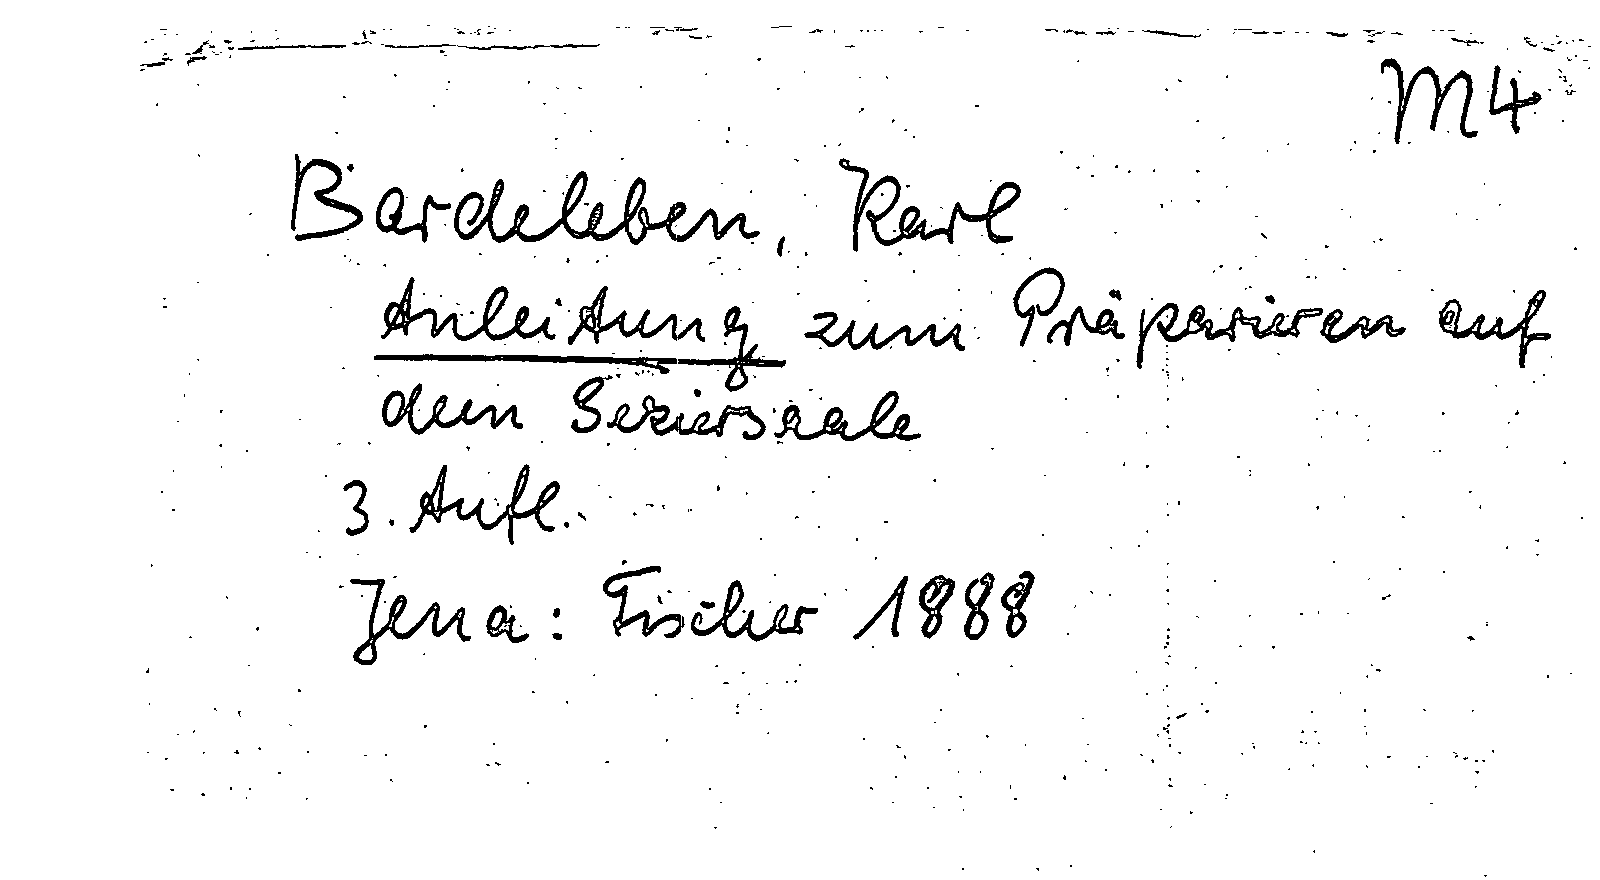 M4
Bardeleben, Karl
Anleitung zum Präparieren auf
dem Seziersaale
3. Aufl.
Jena: Fischer 1888